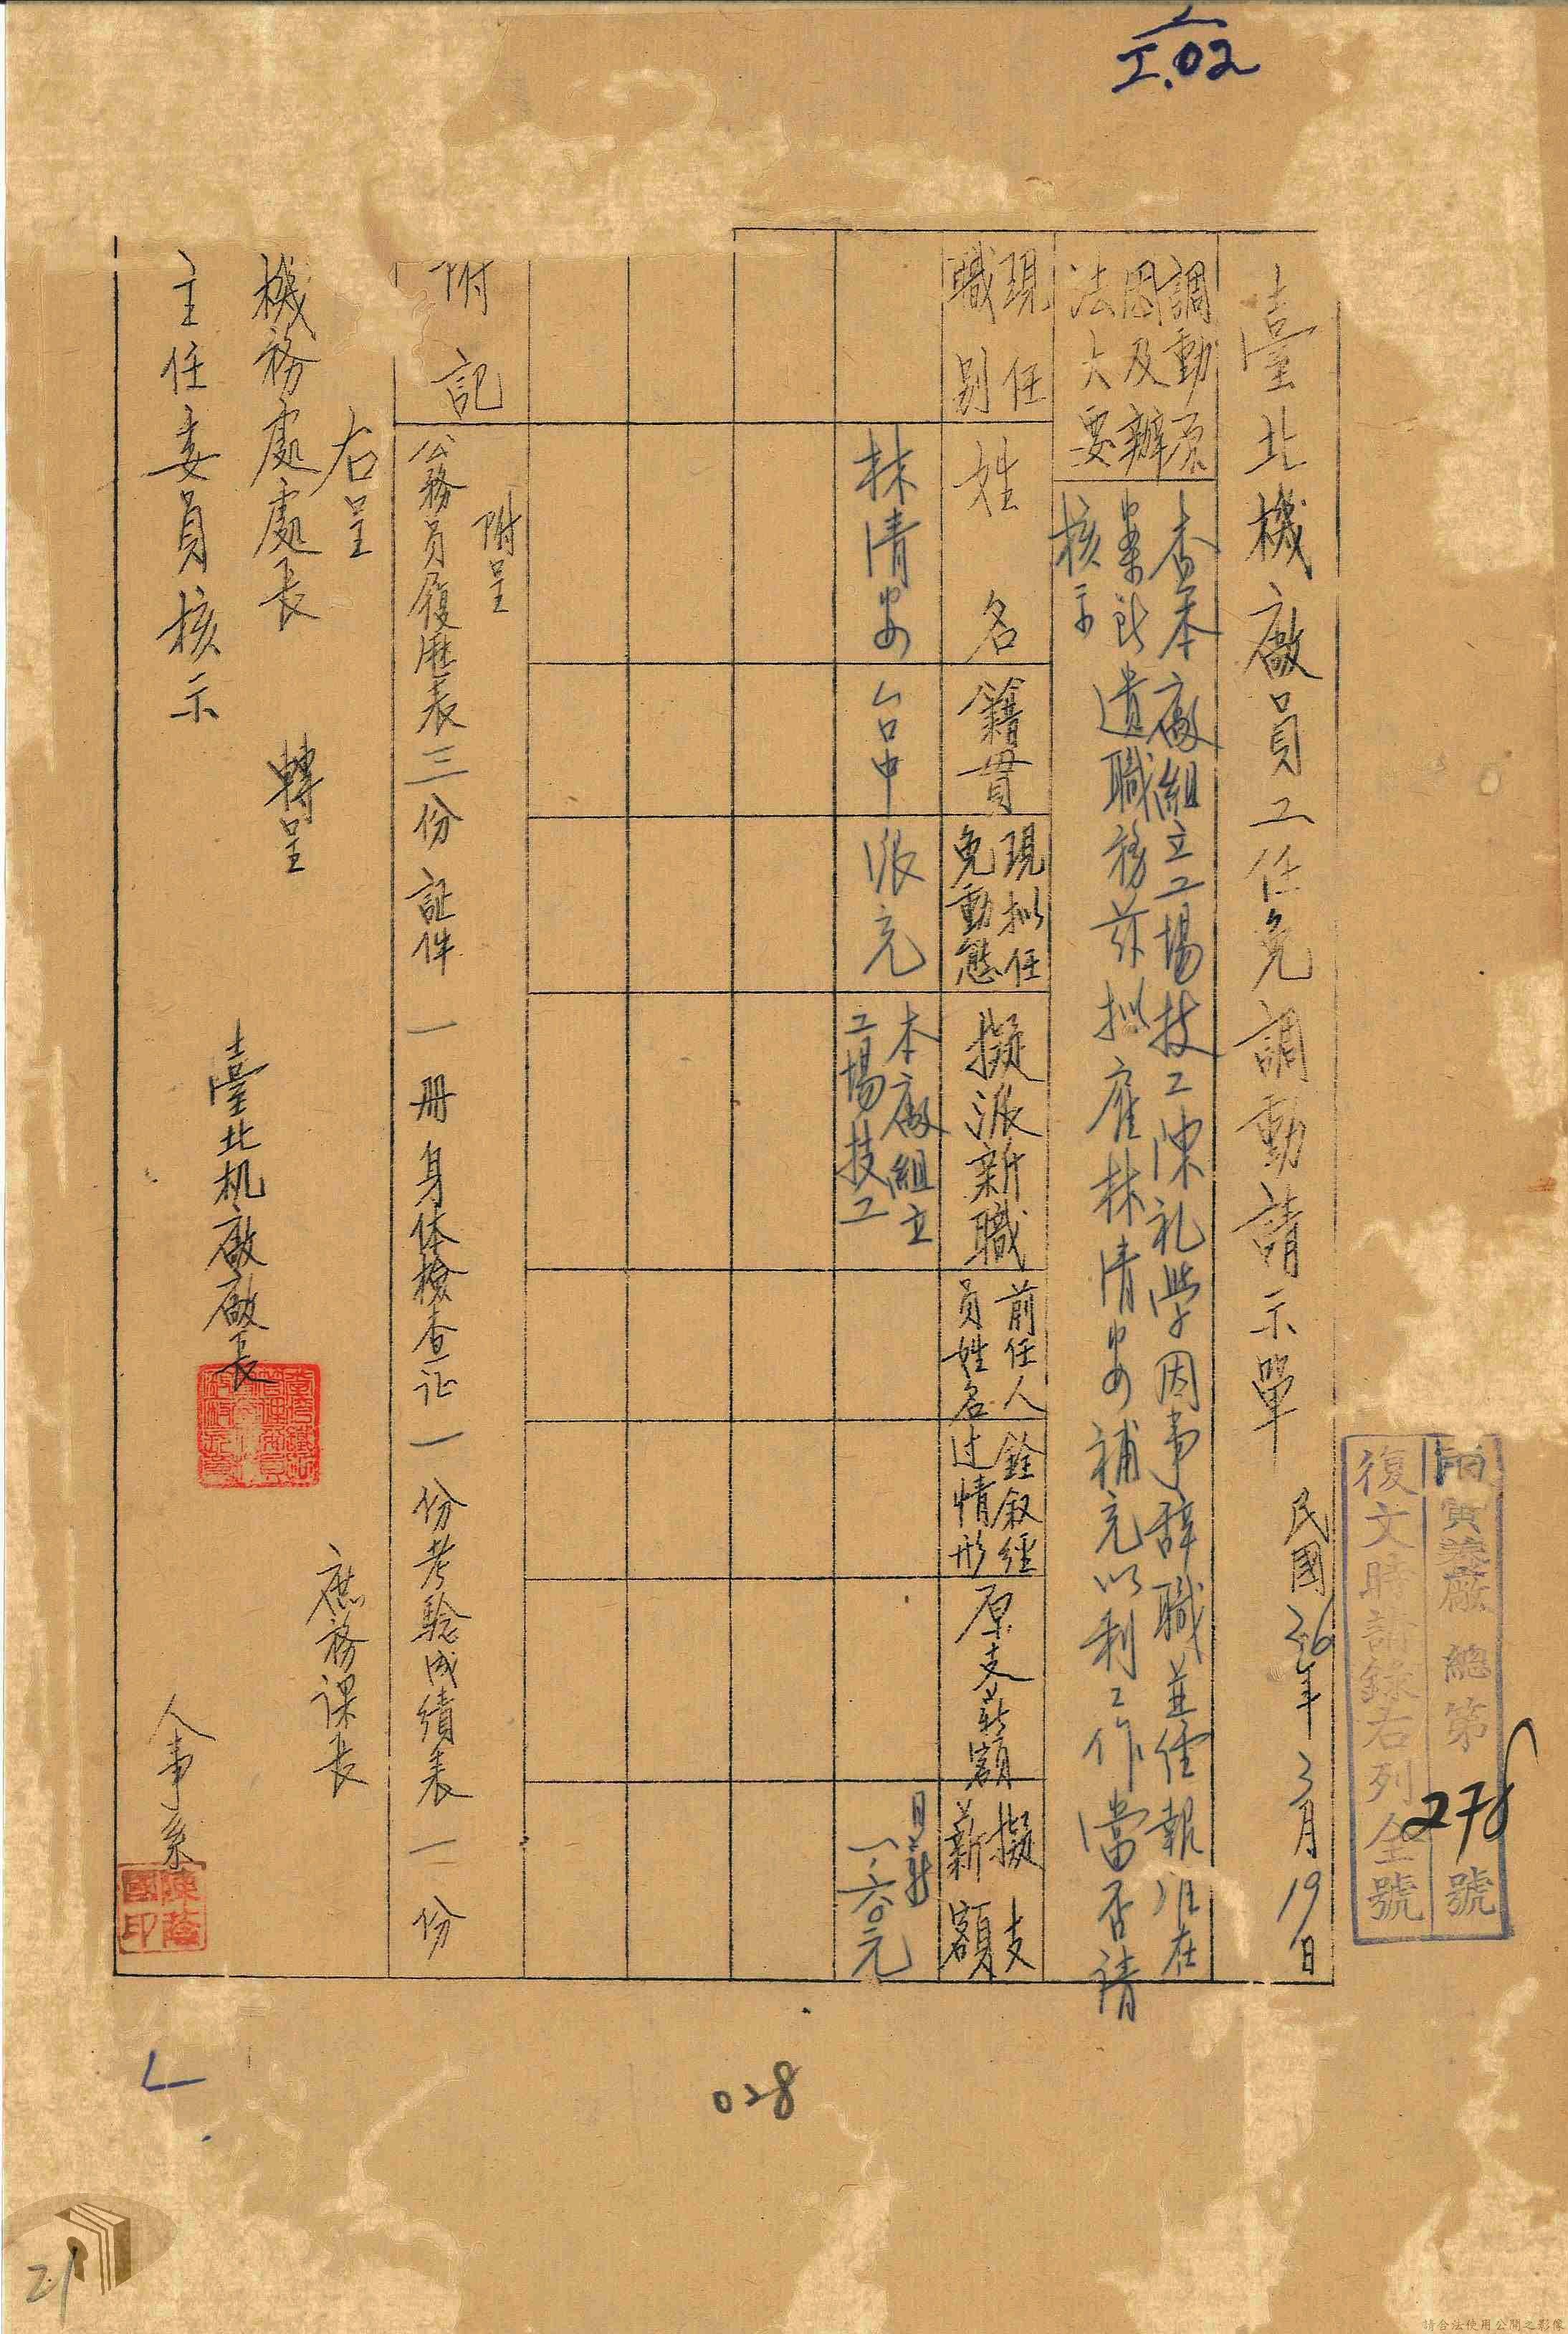 I.02
臺北機廠員工任免調動請示單
民國36年3月19日
字第278號
復文時請錄右列全號
調動原因及辦法大要
查本廠組立工場技工陳礼學因事辞職並経報准在
案所遺職務茲拟雇林清安補充以利工作當否請
核示
現任職別
姓名
籍貫
現拟任免動態
擬派新職
前任人員姓名
銓叙經过情形
原支薪額
擬支薪額
林清安
台中
派充
本廠組立工場技工
月薪
一六〇元
附記
附呈
公務員履歷表三份証件一冊身体檢查证一份考驗成績表一份
右呈
機務處處長
轉呈
主任委員核示
臺北机廠廠長
庶務課長
人事系
陳蔭國印
028
21
請合法使用公開之影像